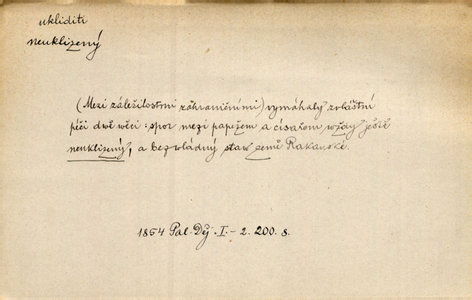 ukliditi
neuklizený
(Mezi záležitostmi zahraničními) vymáhaly zvláštní
péči dvě věci: spor mezi papežem a císařem vždy ještě
neuklizený, a bezvládný stav země Rakouské.
1854 Pal. Děj. I - 2. 200. s.